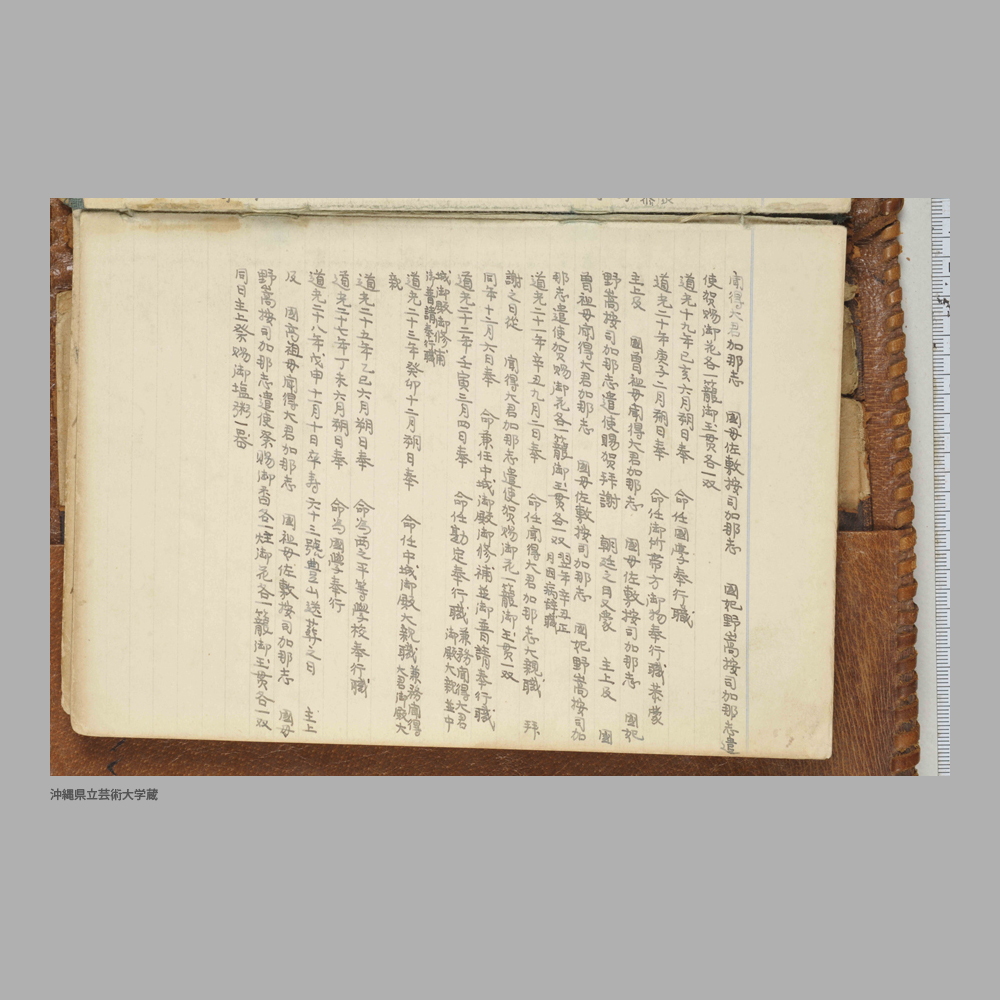 聞得大君加那志　國母佐敷按司加那志　國妃野嵩按司加那志遣
使賀賜御花各一籠御玉貫各一双
道光十九年己亥六月朔日奉　命任國學奉行職
道光二十年庚子二月朔日奉　命任御物奉行職業蒙
主上及　國曽祖母聞得大君加那志　國母佐敷按司加那志　國妃
野嵩按司加那志遣使賜賀拜謝　朝廷之日又蒙　主上及　國
曽祖母聞得大君加那志　國母佐敷按司加那志　國妃野嵩按司加
那志遣使加賜御花各一籠御玉貫各一双翌年辛丑正月因病辞職
道光二十一年辛丑九月二日奉　命任聞得大君加那志大親職　拜
謝之日從　聞得大君加那志遣使賀賜御花一籠御玉貫一双
同年十二月六日奉　命兼任中城御殿御修補並御普請奉行職
道光二十二年壬寅三月四日奉　命任勘定奉行職兼務聞得大君御殿大親並中
城御殿御修補御普請奉行職
道光二十三年癸卯十二月朔日奉　命任中城御殿大親職兼務聞得大君御殿大
親
道光二十五年乙巳六月朔日奉　命為西之平等學校奉行職
道光二十七年丁未六月朔日奉　命為國學奉行
道光二十八年戊申十一月十日卒壽六十三號豊山送葬之日　主上
及　國高祖母聞得大君加那志　國祖母佐敷按司加那志　國母
野嵩按司加那志遣使祭賜御香各一炷御花各一籠御玉貫各一双
同日主上祭賜御塩粥一器
沖縄県立芸術大学蔵